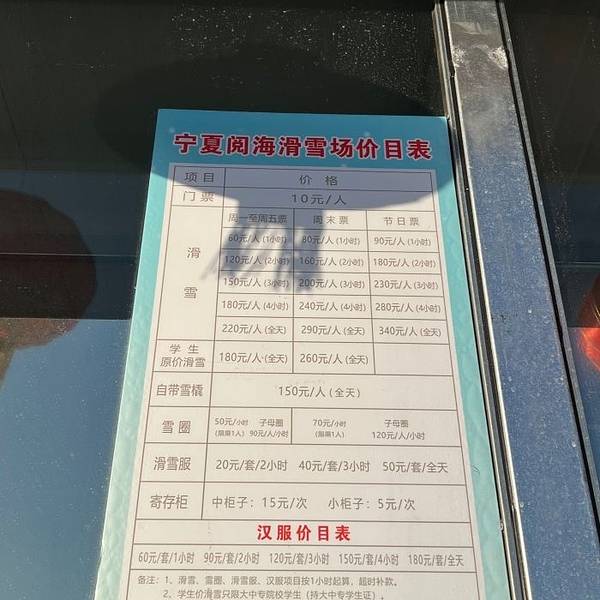 宁夏阅海滑雪场价目表
项目 价格
门票 10元/人
滑雪 周一至周五票 周末票 节日票
60元/人(1小时) 80元/人(1小时) 90元/人(1小时)
120元/人(2小时) 160元/人(2小时) 180元/人(2小时)
150元/人(3小时) 200元/人(3小时) 230元/人(3小时)
180元/人(4小时) 240元/人(4小时) 280元/人(4小时)
220元/人(全天) 290元/人(全天) 340元/人(全天)
学生
原价滑雪 180元/人(全天) 260元/人(全天)
自带雪橇 150元/人(全天)
雪圈 50元/小时 子母圈 70元/小时 子母圈
(限乘1人) 90元/人/小时 (限乘1人) 120元/人/小时
滑雪服 20元/套/2小时 40元/套/3小时 50元/套/全天
寄存柜 中柜子:15元/次 小柜子:5元/次
汉服价目表
60元/套/1小时 90元/套/2小时 120元/套/3小时 150元/套/4小时 180元/套/全天
备注:1、滑雪、雪圈、滑雪服、汉服项目按1小时起算,超时补款。
2、学生价滑雪只限大中专院校学生(持大中专学生证)。